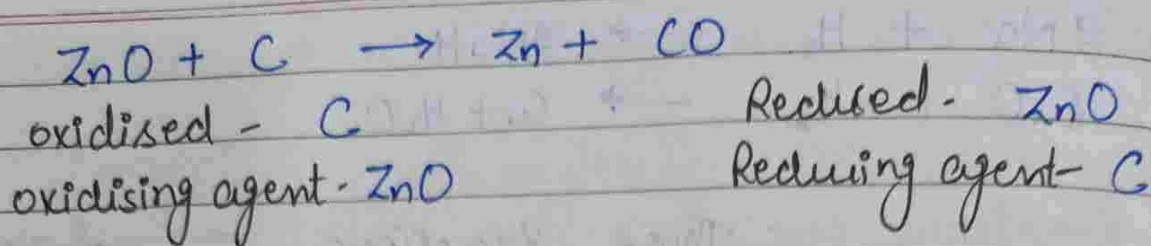 ZnO + C → Zn + CO
oxidised - C Reduced - ZnO
oxidising agent - ZnO Reducing agent - C